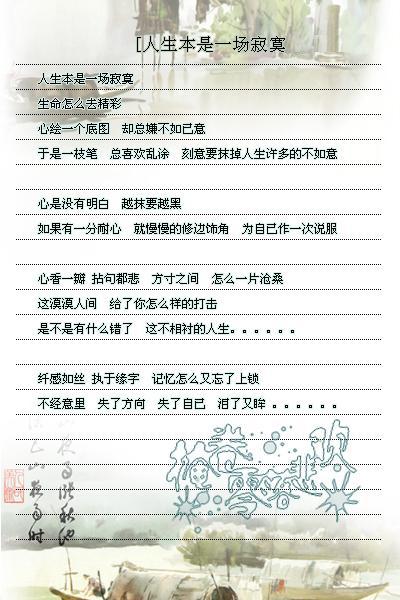 [人生本是一场寂寞
人生本是一场寂寞
生命怎么去精彩
心绘一个底图　却总嫌不如己意
于是一枝笔　总喜欢乱涂　刻意要抹掉人生许多的不如意
心是没有明白　越抹要越黑
如果有一分耐心　就慢慢的修边饰角　为自己作一次说服
心香一瓣 拈句都悲　方寸之间　怎么一片沧桑
这漠漠人间　给了你怎么样的打击
是不是有什么错了　这不相衬的人生。。。。。。
纤感如丝 执于缘字　记忆怎么又忘了上锁
不经意里　失了方向　失了自己　泪了又眸 。。。。。。